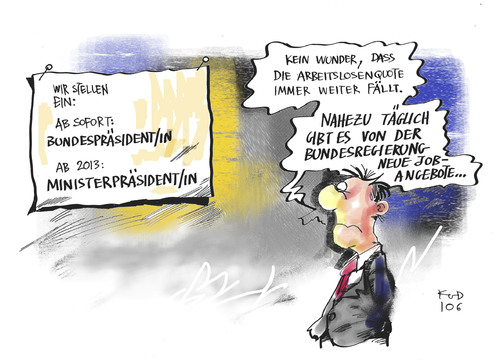 WIR STELLEN
EIN:
AB SOFORT:
BUNDESPRÄSIDENT/IN
AB 2013:
MINISTERPRÄSIDENT/IN
KEIN WUNDER, DASS
DIE ARBEITSLOSENQUOTE
IMMER WEITER FÄLLT.
NAHEZU TÄGLICH
GIBT ES VON DER
BUNDESREGIERUNG
NEUE JOB-
ANGEBOTE...
KvD
106